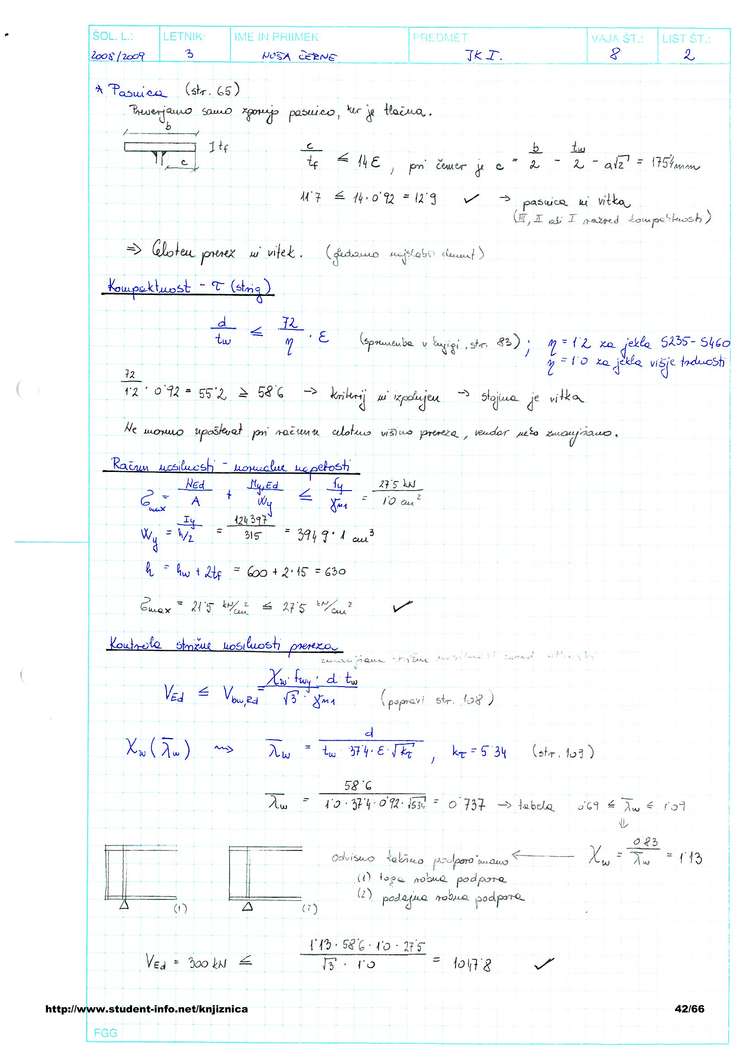 ŠOL. L.: LETNIK: IME IN PRIIMEK PREDMET VAJA ŠT.: LIST ŠT.:
2008/2009 3 NUŠA ČERNE JK I. 8 2
* Pasnica (str. 65)
Preverjamo samo zgornjo pasnico, ker je tlačna.
b
tf
c
c/tf ≤ 14 ε, pri čemer je c = b/2 - tw/2 - a√2 = 175'4 mm
11'7 ≤ 14 · 0'92 = 12'9 ✓ → pasnica ni vitka
(III, II ali I razred kompaktnosti)
⇒ Celoten prerez ni vitek. (gledamo najslabši element)
Kompaktnost - τ (strig)
d/tw ≤ 72/η · ε (sprememba v knjigi, str. 83); η = 1'2 za jekla S235-S460
η = 1'0 za jekla višje trdnosti
72/1'2 · 0'92 = 55'2 ≥ 58'6 → kriterij ni izpolnjen → stojina je vitka
Ne moremo upoštevat pri računu celotno višino prereza, vendar nešo zmanjšano.
Račun nosilnosti - normalne napetosti
σmax = NEd/A + My,Ed/Wy ≤ fy/γM1 = 27'5 kN/1'0 cm²
Wy = Iy/h/2 = 124397/31'5 = 3949'1 cm³
h = hw + 2tf = 600 + 2·15 = 630
σmax = 21'5 kN/cm² ≤ 27'5 kN/cm² ✓
Kontrola strižne nosilnosti prereza
VEd ≤ Vbw,Rd = χw · fwy · d tw/√3 · γM1 (popravi str. 108)
χw (λ̄w) ⇝ λ̄w = d/tw · 37'4 · ε · √kτ, kτ = 5'34 (str. 109)
λ̄w = 58'6/1'0 · 37'4 · 0'92 · √5'34 = 0'737 → tabela 0'69 ≤ λ̄w ≤ 1'09
⇓
χw = 0'83/λ̄w = 1'13
odvisno kakšno podporo imamo ←
(1) toga robna podpora
(2) podajna robna podpora
(1) (2)
VEd = 300 kN ≤ 1'13 · 58'6 · 1'0 · 27'5/√3 · 1'0 = 1047'8 ✓
http://www.student-info.net/knjiznica 42/66
FGG